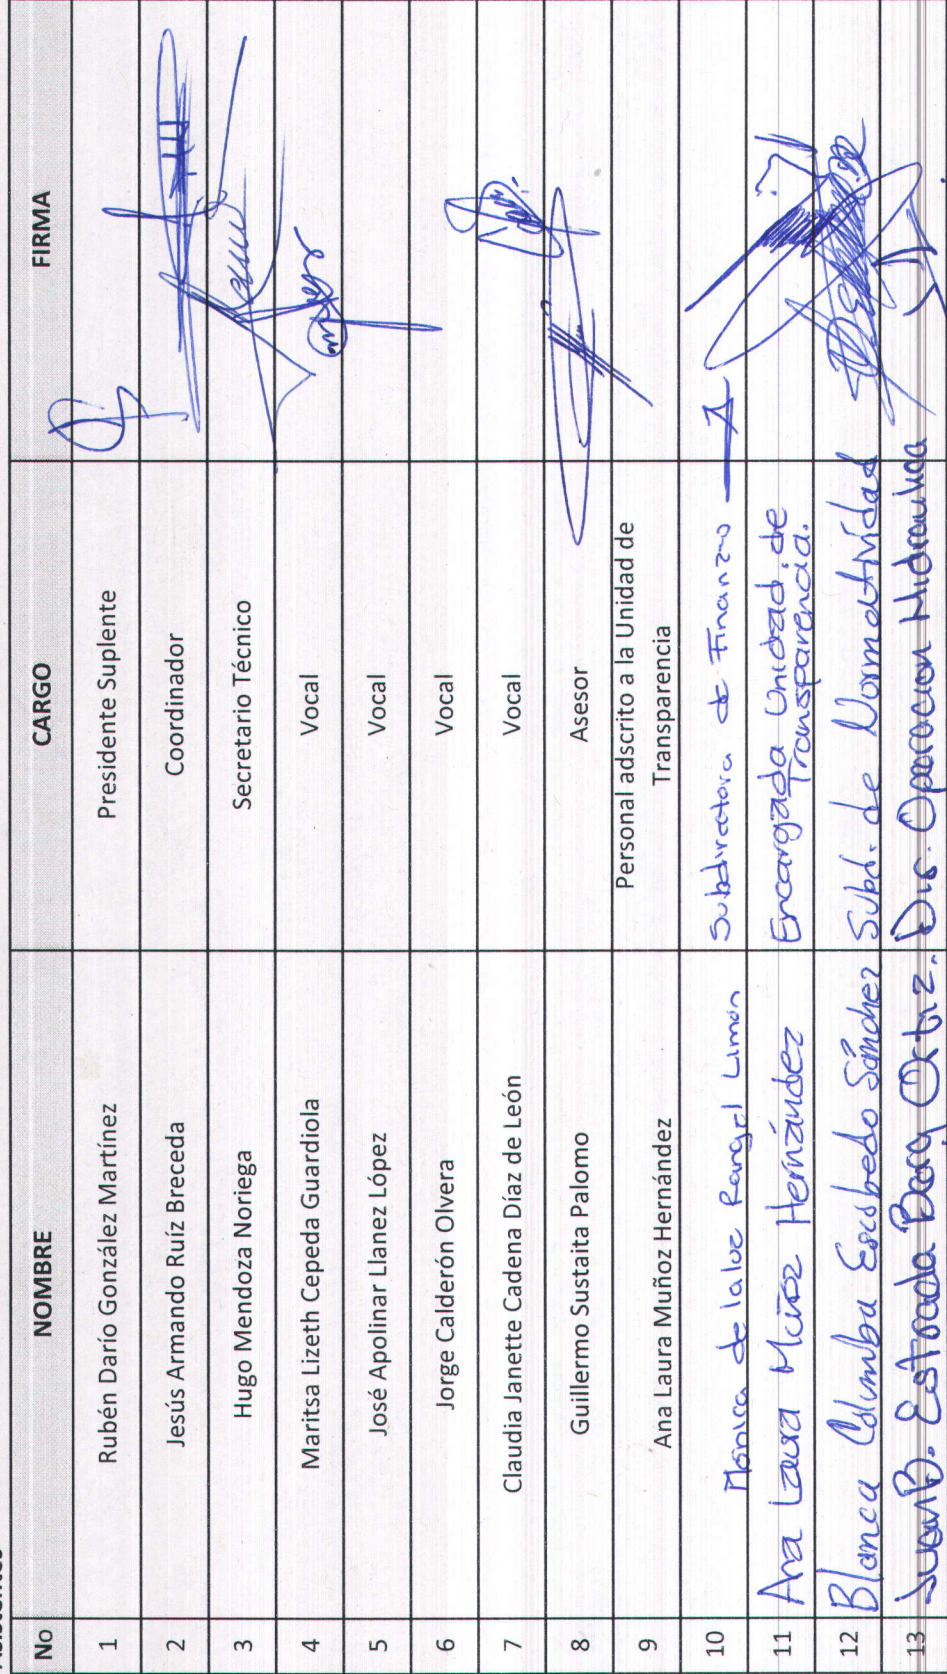 No NOMBRE CARGO FIRMA
1 Rubén Darío González Martínez Presidente Suplente
2 Jesús Armando Ruíz Breceda Coordinador
3 Hugo Mendoza Noriega Secretario Técnico
4 Maritsa Lizeth Cepeda Guardiola Vocal
5 José Apolinar Llanez López Vocal
6 Jorge Calderón Olvera Vocal
7 Claudia Janette Cadena Díaz de León Vocal
8 Guillermo Sustaita Palomo Asesor
9 Ana Laura Muñoz Hernández Personal adscrito a la Unidad de
Transparencia
10 Mónica de la luz Rangel Limón Subdirectora de Finanzas
11 Ana Laura Muñoz Hernández Encargada Unidad de
Transparencia.
12 Blanca Columba Escobedo Sánchez Subd. de Normatividad
13 Juan B. Estrada Ortiz. Dir. Operacion Hidraulica